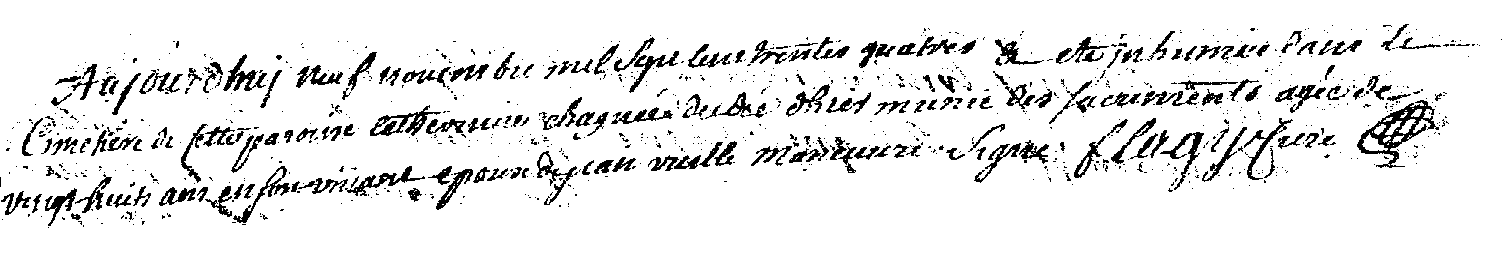 Aujourdhuij neuf novembre mil sept cent trentes quatres a ete jnhumée dans le
Cimetiere de cette paroisse catherinne chagnée decedée dhier munie des sacrements agée de
vingt huits ans en son vivant epouse de jean vieille maneuvre Signé flagy Curé